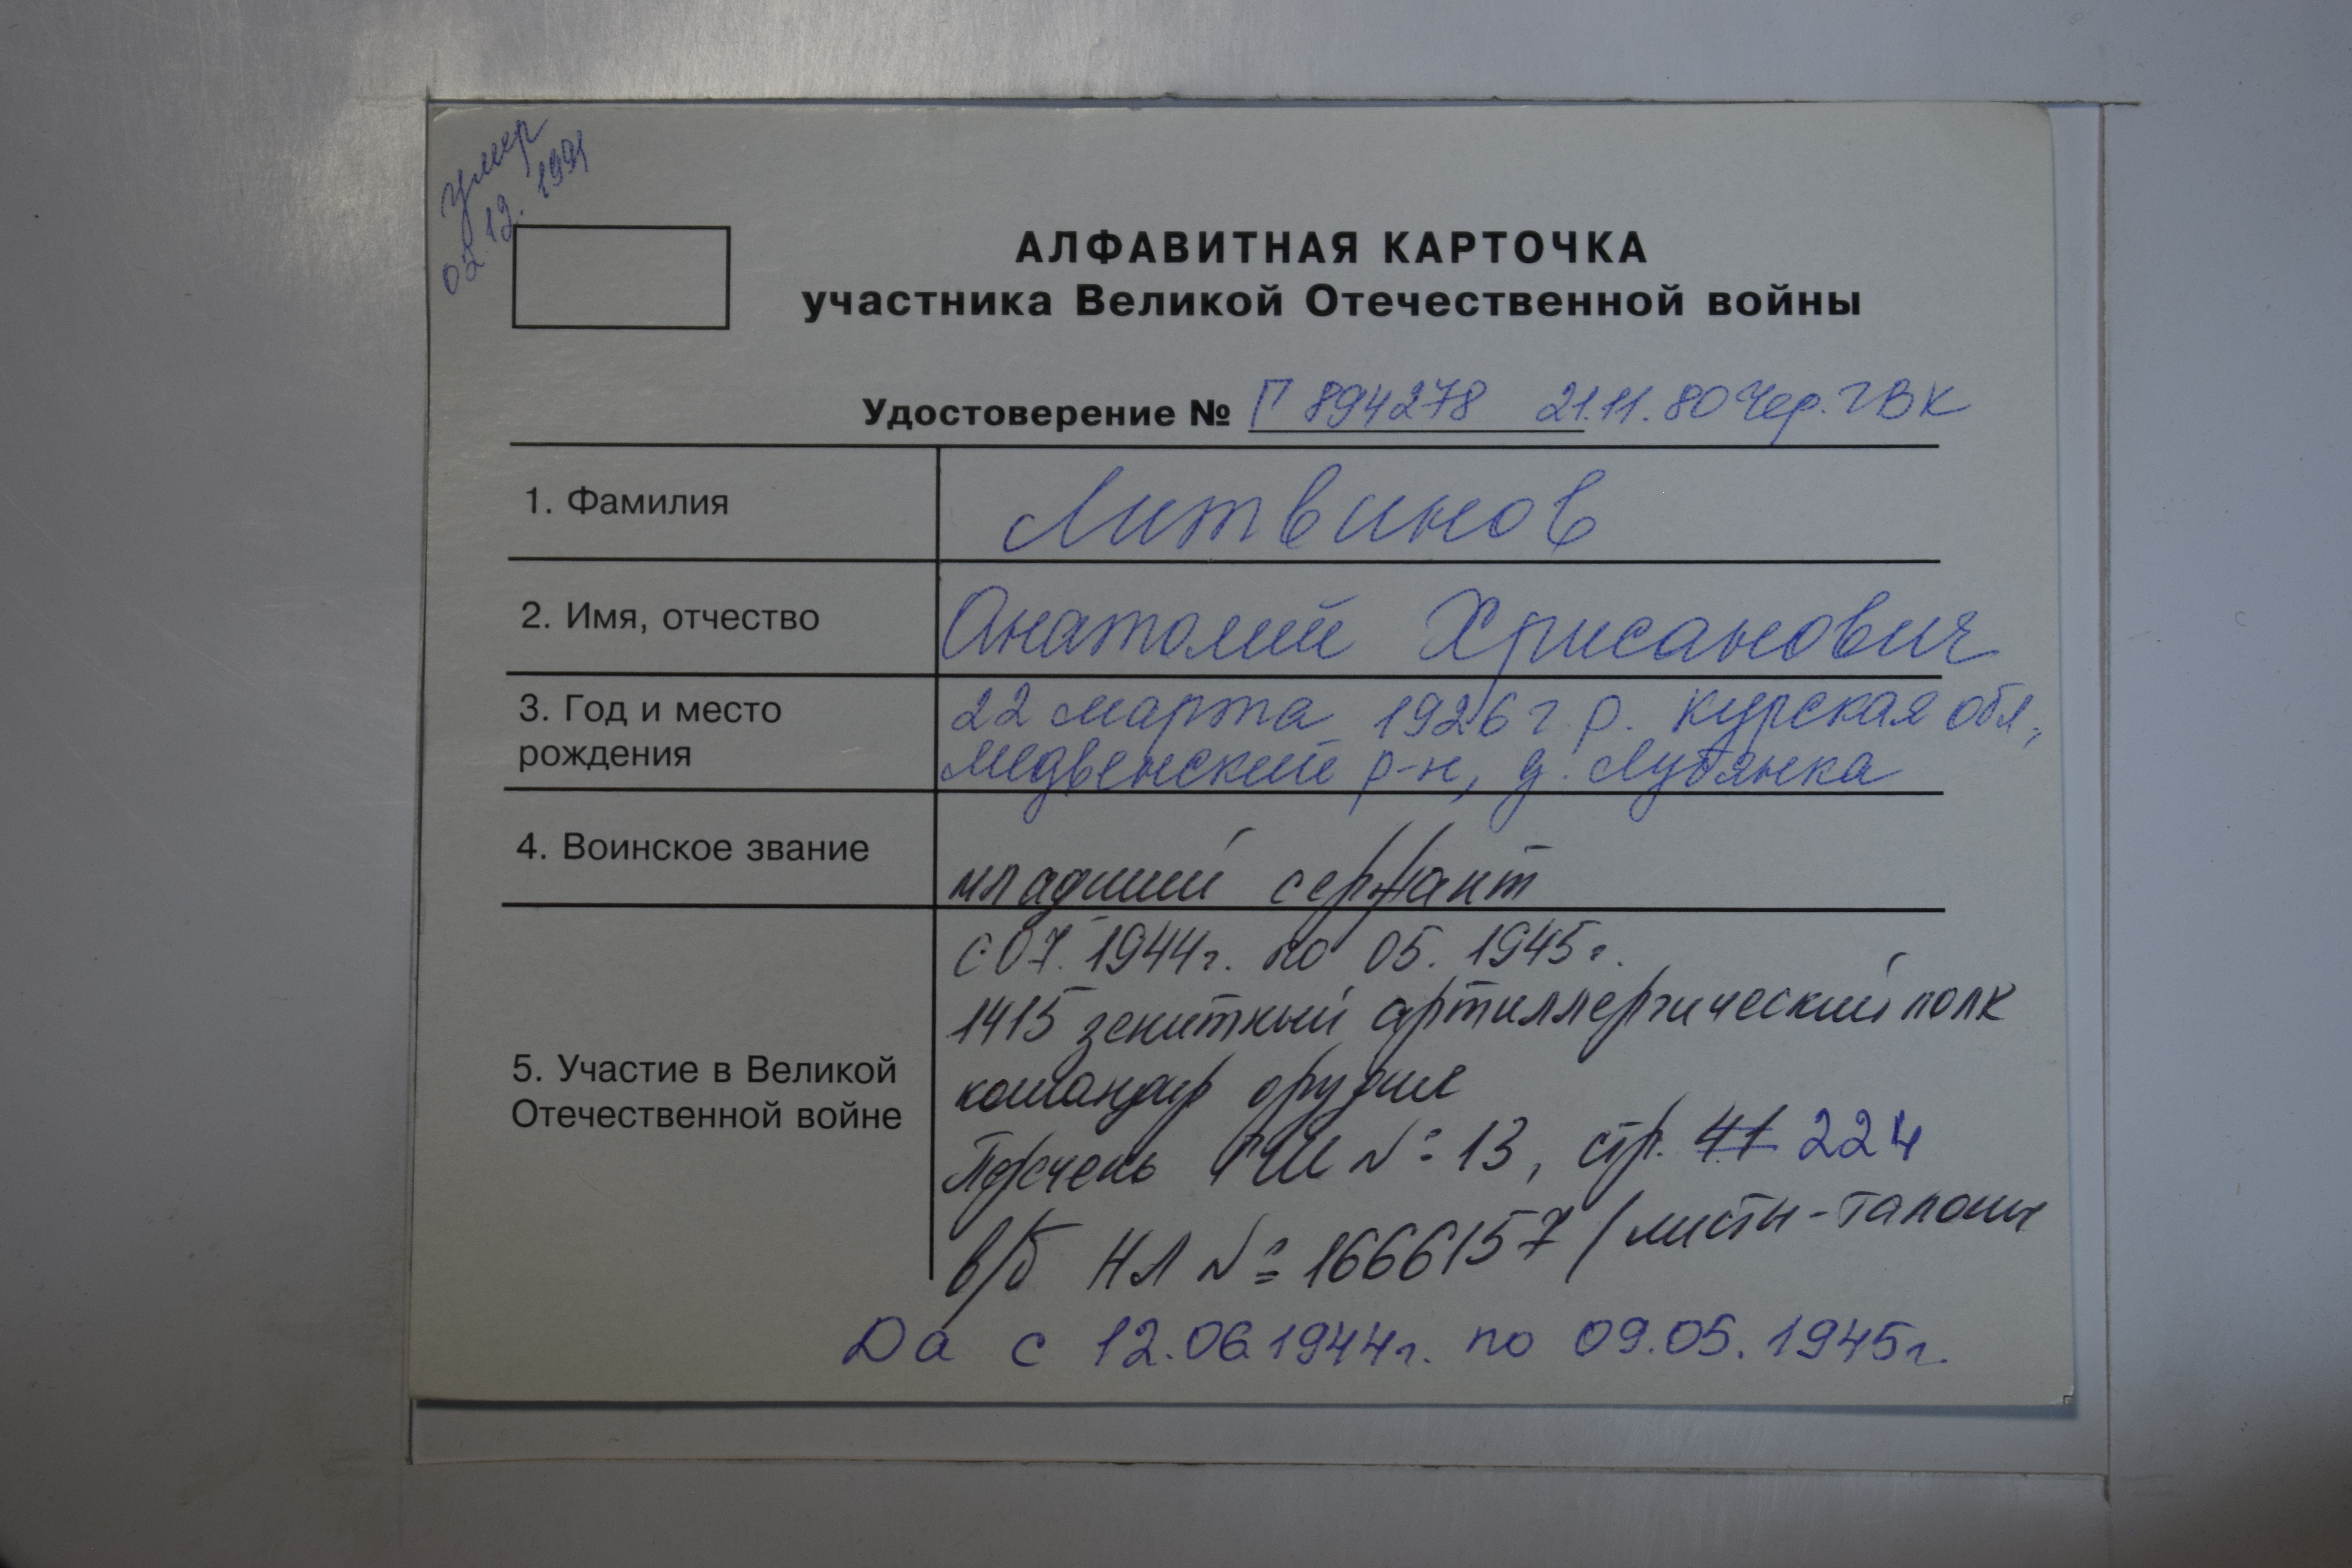 умер
02.12.1991
АЛФАВИТНАЯ КАРТОЧКА
участника Великой Отечественной войны
Удостоверение № Г 894278 21.11.80 Чер. ГВК
1. Фамилия
Литвинов
2. Имя, отчество
Анатолий Хрисанович
3. Год и место
рождения
22 марта 1926 г.р. Курская обл,
Медвенский р-н, д. Лубянка
4. Воинское звание
младший сержант
5. Участие в Великой
Отечественной войне
с 07.1944г. по 05.1945г.
1415 зенитный артиллерийский полк
командир орудия
Перечень ГШ № 13, стр. 41 224
в/б НЛ № 1666157 /листы-талоны
Да с 12.06.1944г. по 09.05.1945г.